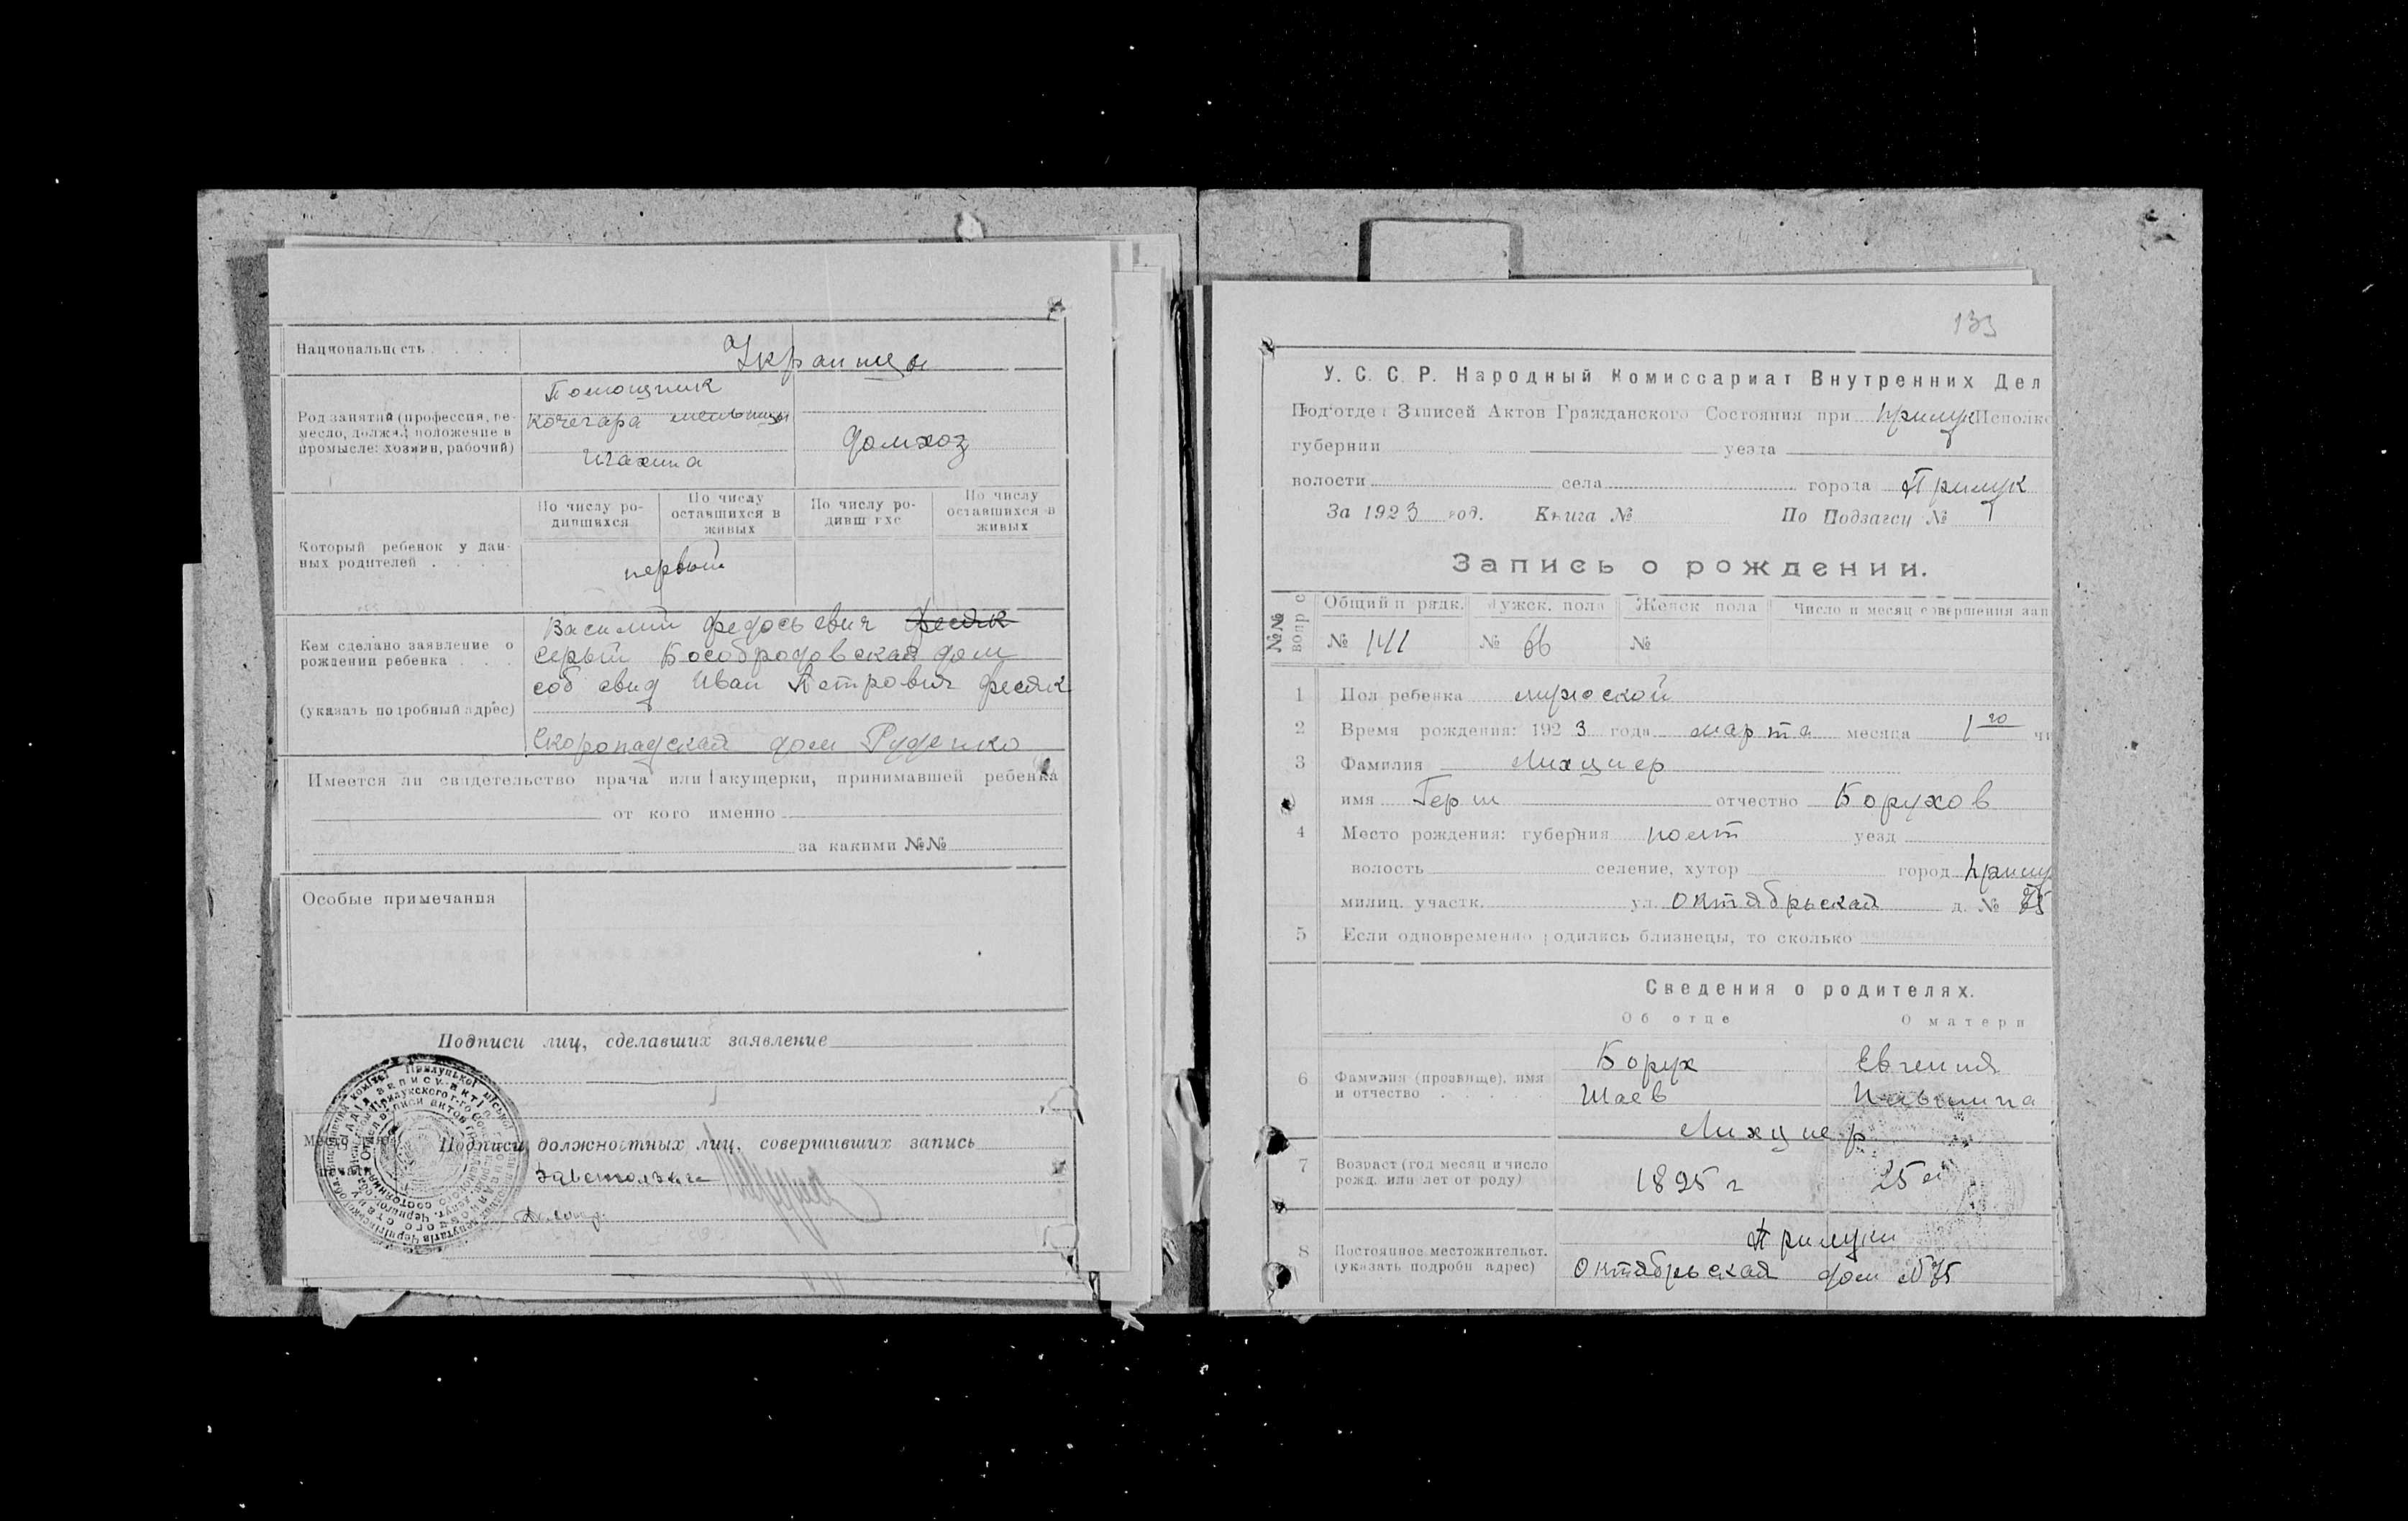 Национальность
Украинцы
Род занятий (профессия, ре-
месло, должн., положение в
промысле: хозяин, рабочий)
Помощник
кочегара мельницы
домхоз
По числу ро-
дившихся
По числу
оставшихся в
живых
По числу ро-
дивш ихс
По числу
оставшихся в
живых
Который ребенок у дан-
ных родителей
первый
Кем сделано заявление о
рождении ребенка
(указать подробный адрес)
Василий Федосьевич Фесяк
Серый дом
соб свид Иван Петрович Фесяк
Скоропадская дом Руденко
Имеется ли свидетельство врача или акушерки, принимавшей ребенка
от кого именно
за какими №№
Особые примечания
Подписи лиц, сделавших заявление
Место для
печати
Подписи должностных лиц, совершивших запись
133
У. С. С. Р. Народный Комиссариат Внутренних Дел
Подотдел Записей Актов Гражданского Состояния при Прилук Исполк
губернии уезда
волости села города Прилук
За 1923 год. Книга № По Подзагсу №
Запись о рождении.
№№
вопр с
Общий п рядк. Мужск. пола Женск пола Число и месяц совершения зап
№ 141 № 66 №
1 Пол ребенка мужской
2 Время рождения: 1923 года марта месяца 1го чи
3 Фамилия Лихциер
имя Герш отчество Борухов
4 Место рождения: губерния полт уезд
волость селение, хутор город Прилу
милиц. участк. ул. Октябрьская д. № 75
5 Если одновременно родились близнецы, то сколько
Сведения о родителях.
Об отце О матери
6 Фамилия (прозвище), имя
и отчество
Борух Евгения
Шаев
Лихциер
7 Возраст (год месяц и число
рожд. или лет от роду)
1895 г 25 л
8 Постоянное местожительст.
(указать подробн адрес)
Прилуки
Октябрьская дом №75